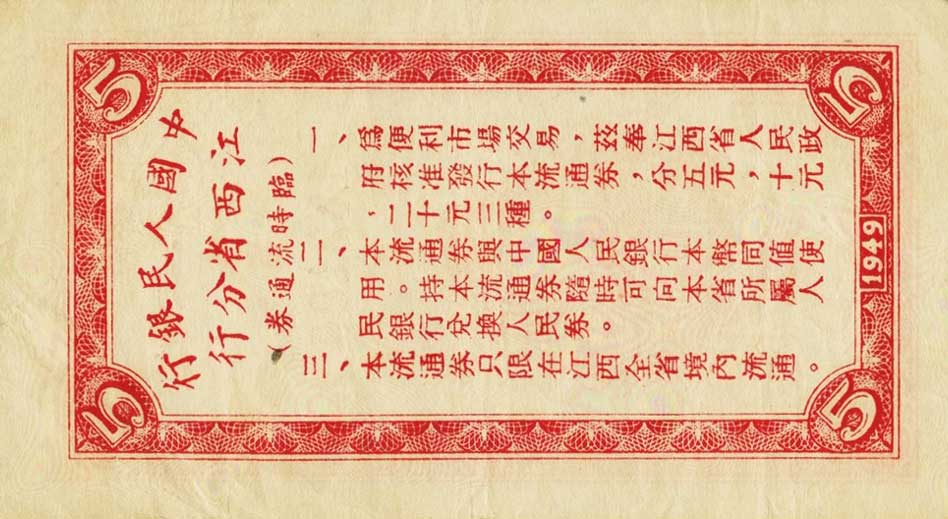 5
5
中國人民銀行
江西省分行
(臨時流通券)
一、爲便利市場交易，茲奉江西省人民政
府核准發行本流通券，分五元，十元
、二十元三種。
二、本流通券與中國人民銀行本幣同值使
用。持本流通券隨時可向本省所屬人
民銀行兌換人民券。
三、本流通券只限在江西全省境內流通。
5
1949
5